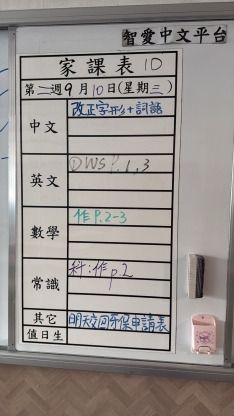 智愛中文平台
家課表 10
第二週9月10日(星期三)
中文 改正字形+詞語
英文 ①WS P.1,3
數學 作P.2-3
常識 科:作p.2
其它 明天交回牙保申請表
值日生